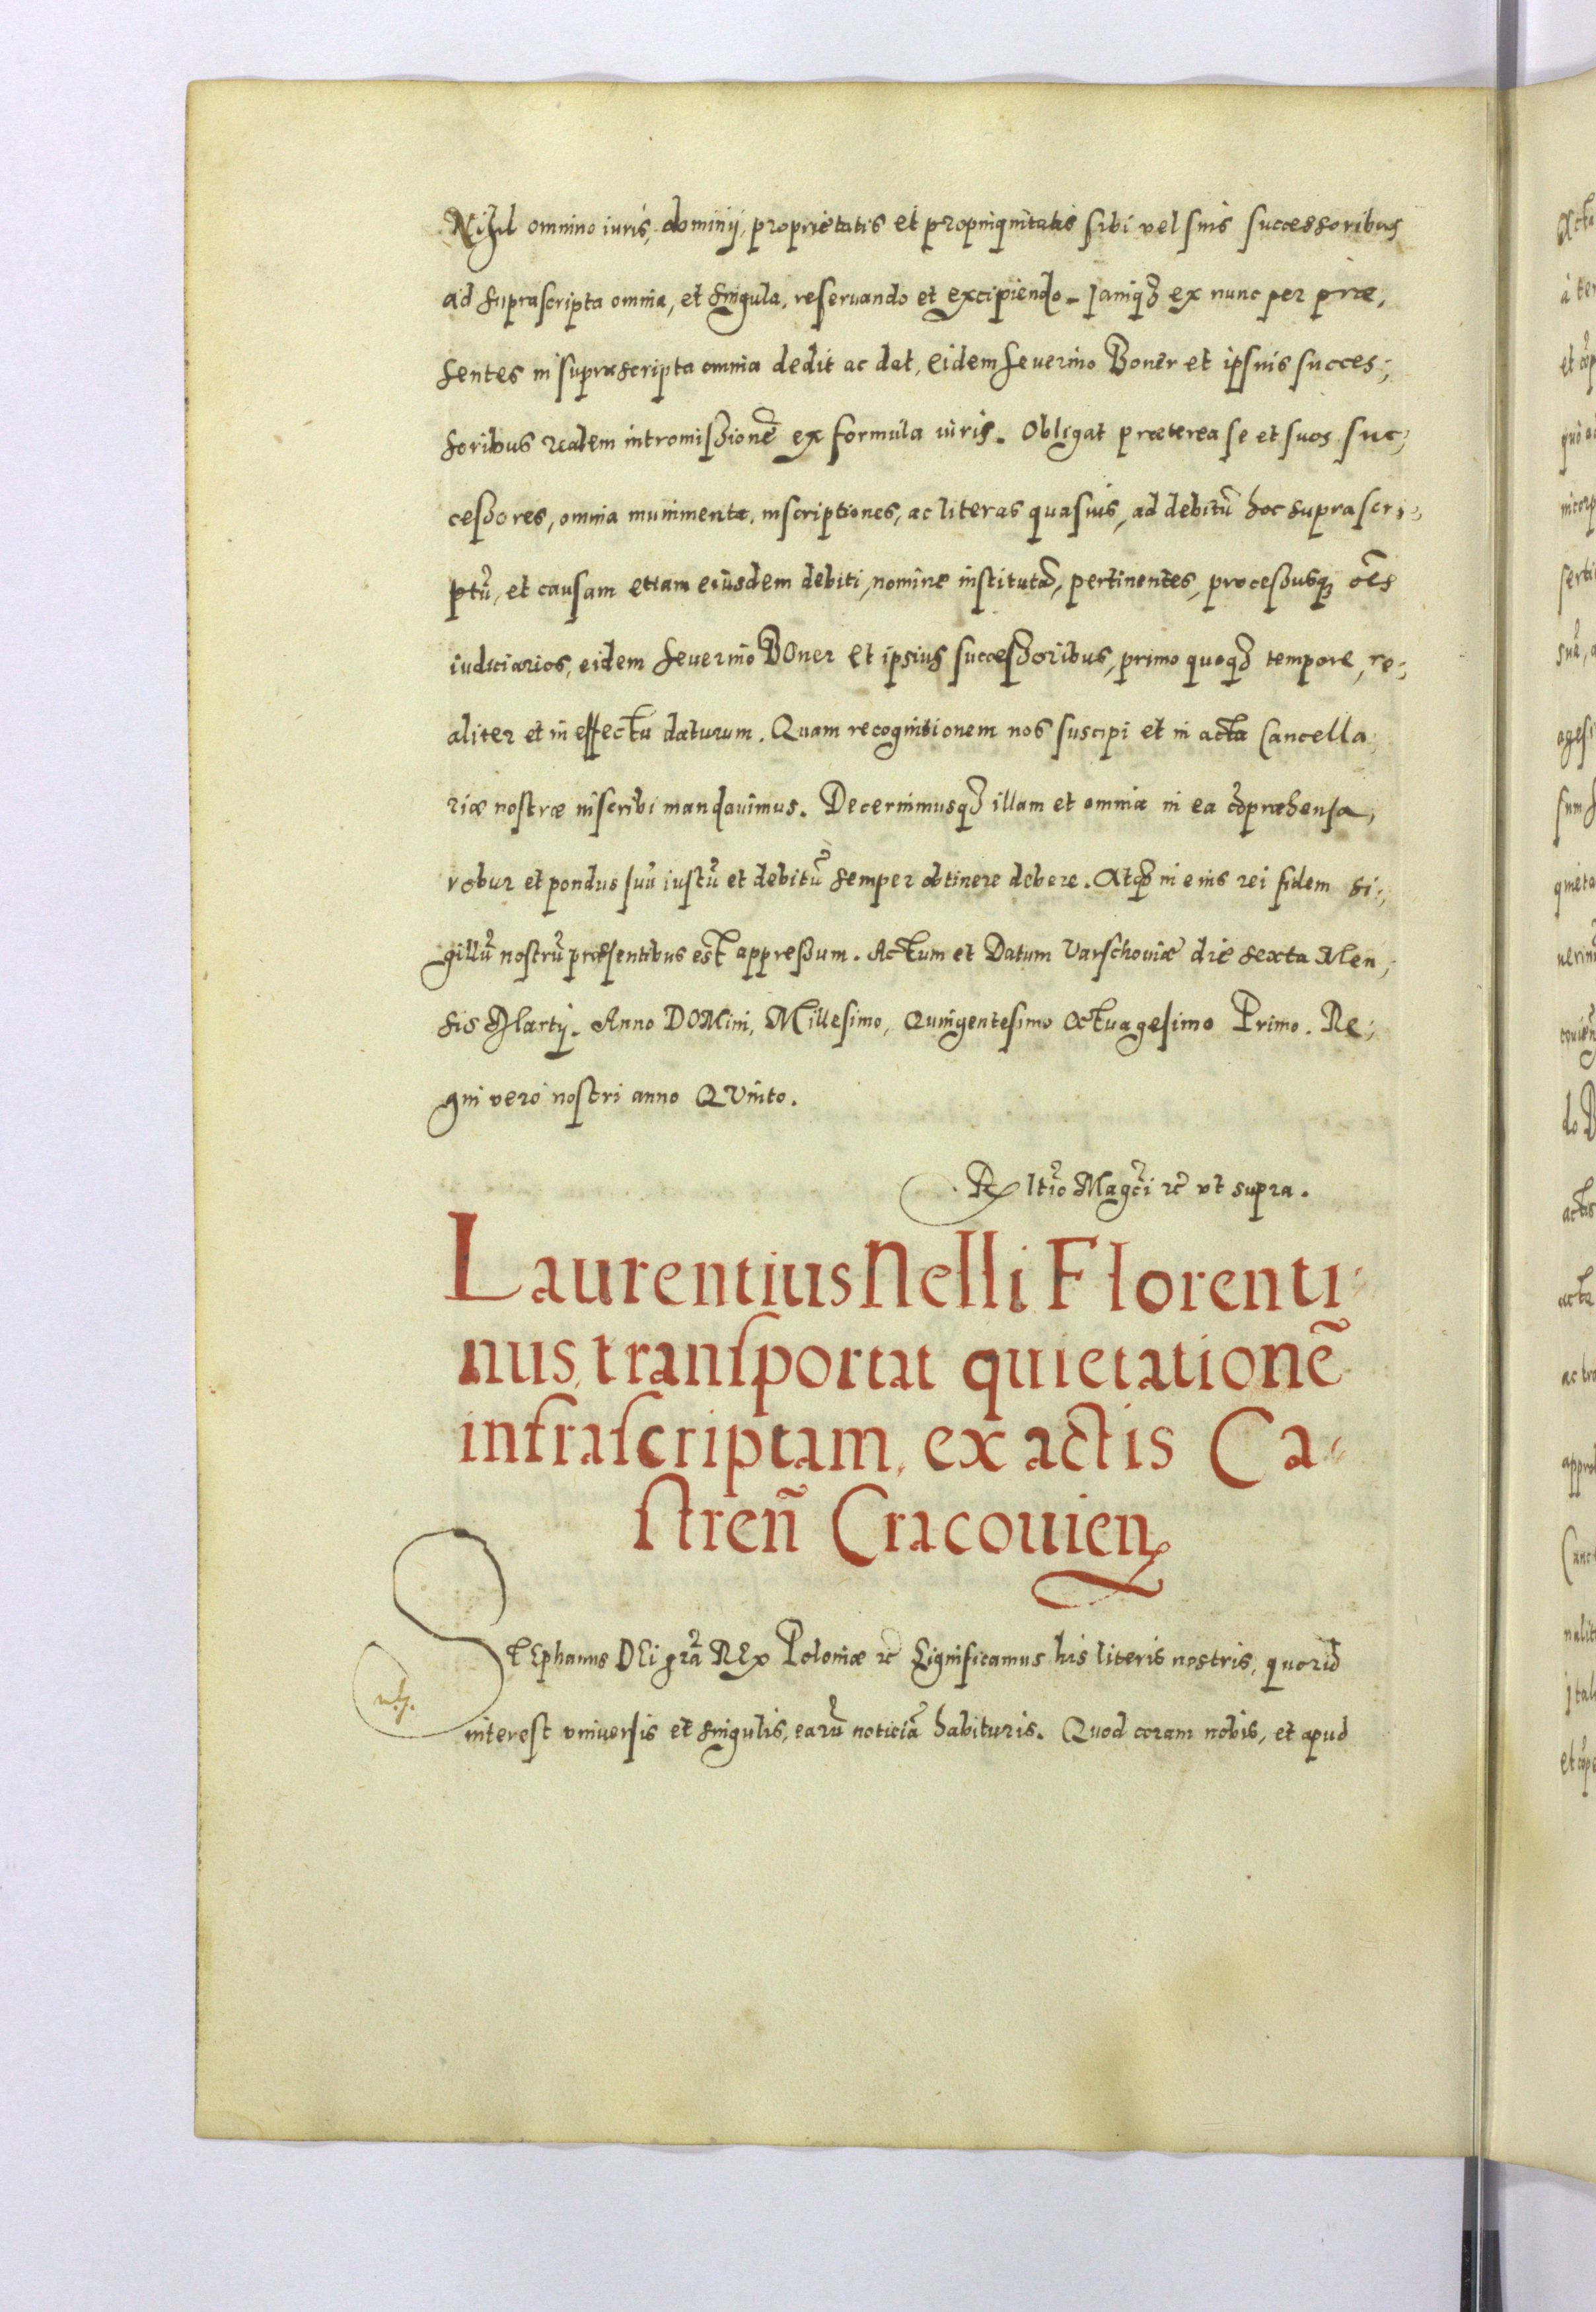 Nihil omnino iuris, dominij, proprietatis et propinquitatis sibi vel suis successoribus
ad suprascripta omnia, et singula, reseruando et excipiendo. Iamq₃ ex nunc per præ,
sentes in suprascripta omnia dedit ac dat, eidem Seuerino Boner et ipsuis succes,
soribus realem intromissionē ex formula iuris. Obligat præterea se et suos suc,
cessores, omnia munimenta, inscriptiones, ac literas quasuis, ad debitū hoc suprascri,
ptū, et causam etiam eiusdem debiti, nomine institutā, pertinentes, processusq₃ oēs
iudiciarios, eidem Seuerino BOner et ipsius successoribus, primo quoq₃ tempore, re,
aliter et in effectu daturum. Quam recognitionem nos suscipi et in acta Cancella,
riæ nostræ inscribi mandauimus. Decernimusq₃ illam et omnia in ea cōpræhensa,
robur et pondus suū iustū et debitū semper obtinere debere. Atq₃ in eius rei fidem si,
gillū nostrū præsentibus est appressum. Actum et Datum Varschouiæ die sexta Men,
sis Martij. Anno DOMini, Millesimo, Quingentesimo Octuagesimo Primo. Re,
gni vero nostri anno QVinto.
Rltio Magci rc vt supra.
Laurentius Nelli Florenti,
nus, transportat quietationē
infrascriptam, ex actis Ca,
streñ Cracouien
STEphanus DEi grã REx Poloniæ rc Significamus his literis nostris, quorū
interest vniuersis et singulis, earū noticiā habituris. Quod coram nobis, et apud